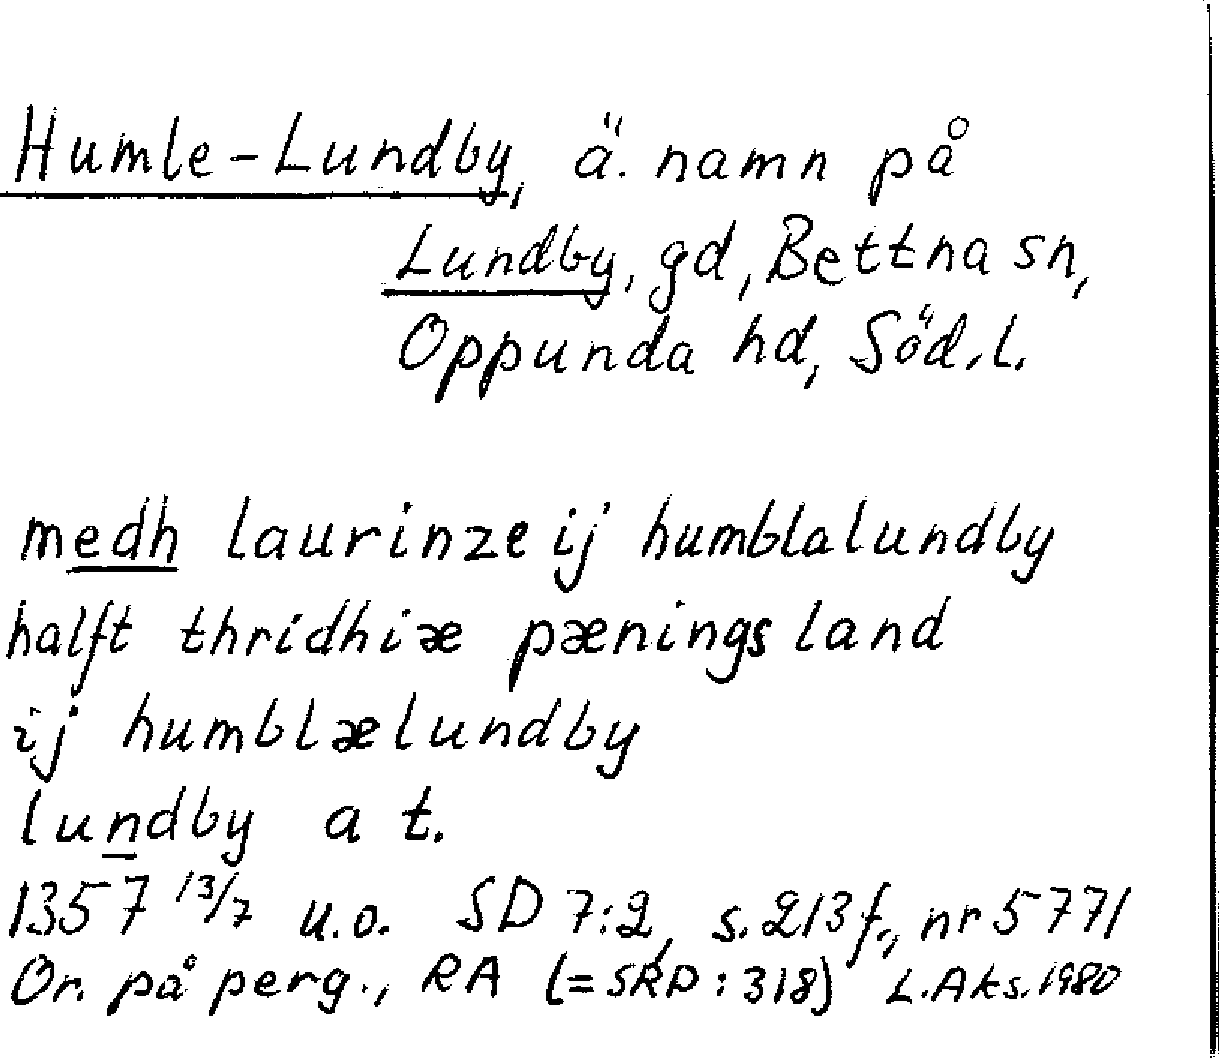 Humle-Lundby, ä. namn på
Lundby, gd, Bettna sn,
Oppunda hd, Söd.l.
medh laurinze ij humblalundby
halft thridhiæ pænings land
ij humblælundby
lundby a t.
1357 13/7 u.o. SD 7:2, s.213f., nr 5771
Or. på perg., RA (=SRP:318) L.Aks.1980